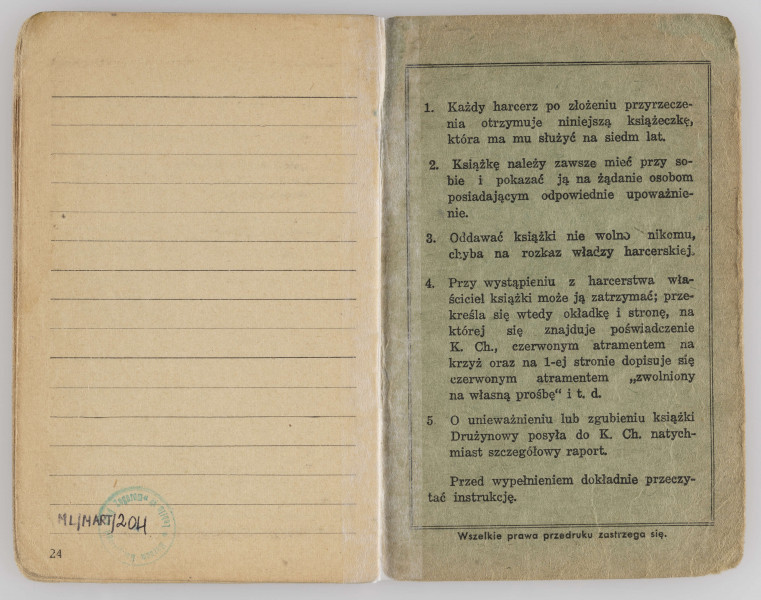 ML/MART/204
24
1. Każdy harcerz po złożeniu przyrzecze-
nia otrzymuje niniejszą książeczkę,
która ma mu służyć na siedm lat.
2. Książkę należy zawsze mieć przy so-
bie i pokazać ją na żądanie osobom
posiadającym odpowiednie upoważnie-
nie.
3. Oddawać książki nie wolno nikomu,
chyba na rozkaz władzy harcerskiej.
4. Przy wystąpieniu z harcerstwa wła-
ściciel książki może ją zatrzymać; prze-
kreśla się wtedy okładkę i stronę, na
której się znajduje poświadczenie
K. Ch., czerwonym atramentem na
krzyż oraz na 1-ej stronie dopisuje się
czerwonym atramentem „zwolniony
na własną prośbę" i t. d.
5. O unieważnieniu lub zgubieniu książki
Drużynowy posyła do K. Ch. natych-
miast szczegółowy raport.
Przed wypełnieniem dokładnie przeczy-
tać instrukcję.
Wszelkie prawa przedruku zastrzega się.